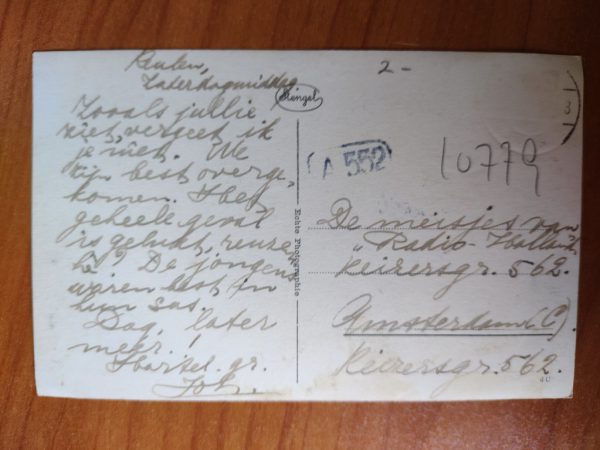 Zaterdagmiddag
Zooals jullie
ziet, vergeet ik
je niet. We
zijn best overge-
komen. Het
geheele geval
is gelukt, reuze
hè? De jongens
waren best in
hun sas.
Dag, later
meer!
Hartel. gr.
2-
Stengel
A 552
10779
3
Echte Photographie
De meisjes van
"Radio-Holland"
Keizersgr. 562.
Amsterdam (C).
Keizersgr. 562.